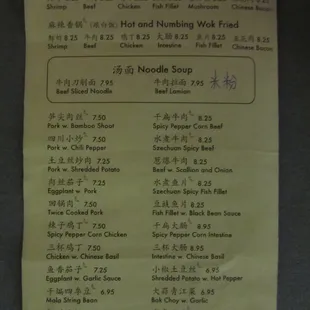 Shrimp Beef Chicken Fish Fillet Mushroom Chinese Bacon
麻辣香锅 Hot and Numbing Wok Fried
8.25 牛肉 8.25 鸡丁 8.25 大肠 8.25 鱼片 8.25 8.25
Shrimp Beef Chicken Intestine Fish Fillet Chinese Bacon
汤面 Noodle Soup
牛肉刀削面 7.95 牛肉拉面 7.95 米粉
Beef Sliced Noodle Beef Lamian
笋尖肉丝 7.50 干扁牛肉 8.25
Pork w. Bamboo Shoot Spicy Pepper Corn Beef
四川小炒 7.50 水煮牛肉 8.25
Pork w. Chili Pepper Szechuan Spicy Beef
土豆丝炒肉 7.25 葱爆牛肉 8.25
Pork w. Shredded Potato Beef w. Scallion and Onion
肉丝茄子 7.25 水煮鱼片 8.25
Eggplant w. Pork Szechuan Spicy Fish Fillet
回锅肉 7.50 豆豉鱼片 8.25
Twice Cooked Pork Fish Fillet w. Black Bean Sauce
辣子鸡丁 7.50 干扁大肠 8.95
Spicy Pepper Corn Chicken Spicy Pepper Corn Intestine
三杯鸡丁 7.50 三杯大肠 8.95
Chicken w. Chinese Basil Intestine w. Chinese Basil
鱼香茄子 7.25 小椒土豆丝 6.95
Eggplant w. Garlic Sauce Shredded Potato w. Hot Pepper
干扁四季豆 6.95 大蒜青江菜 6.95
Mala String Bean Bok Choy w. Garlic